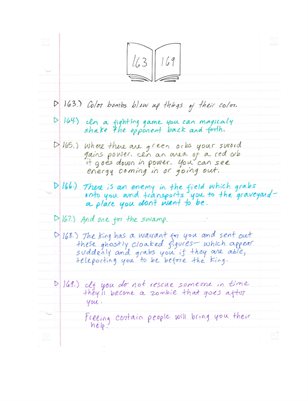 163 169
163.) Color bombs blow up things of their color.
164.) In a fighting game you can magically
shake the opponent back and forth.
165.) Where there are green orbs your sword
gains power. In an area of a red orb
it goes down in power. You can see
energy coming in or going out.
166.) There is an enemy in the field which grabs
onto you and transports you to the graveyard-
a place you dont want to be.
167.) And one for the swamp.
168.) The King has a warrant for you and sent out
these ghostly cloaked figures- which appear
suddenly and grabs you if they are able,
teleporting you to be before the King.
169.) If you do not rescue someone in time
they'll become a zombie that goes after
you.
Freeing certain people will bring you their
help.